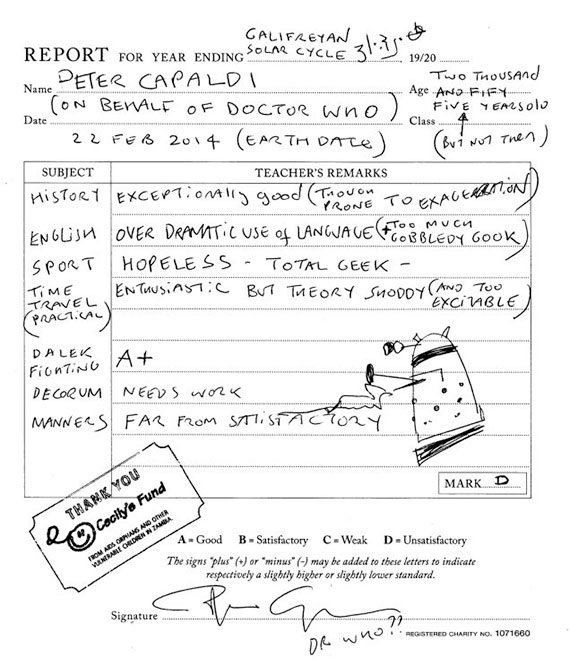 GALIFREYAN
REPORT FOR YEAR ENDING SOLAR CYCLE 19/20
Name PETER CAPALDI Age TWO THOUSAND
AND FIFY
(ON BEHALF OF DOCTOR WHO) FIVE YEARS OLD
Date Class
22 FEB 2014 (EARTH DATE) (BUT NOT THEN)
SUBJECT TEACHER'S REMARKS
HISTORY EXCEPTIONALLY good (THOUGH PRONE TO EXAGERATION)
ENGLISH OVER DRAMATIC USE of LANGUAGE (+ TOO MUCH GOBBLEDY GOOK)
SPORT HOPELESS - TOTAL GEEK -
TIME TRAVEL (PRACTICAL) ENTHUSIASTIC BUT THEORY SHODDY (AND TOO EXCITABLE)
DALEK FIGHTING A+
DECORUM NEEDS WORK
MANNERS FAR FROM SATISFACTORY
MARK D
THANK YOU
Cecily's Fund
FROM AIDS ORPHANS AND OTHER
VULNERABLE CHILDREN IN ZAMBIA
A = Good B = Satisfactory C = Weak D = Unsatisfactory
The signs "plus" (+) or "minus" (-) may be added to these letters to indicate
respectively a slightly higher or slightly lower standard.
Signature
DR WHO??
REGISTERED CHARITY NO. 1071660